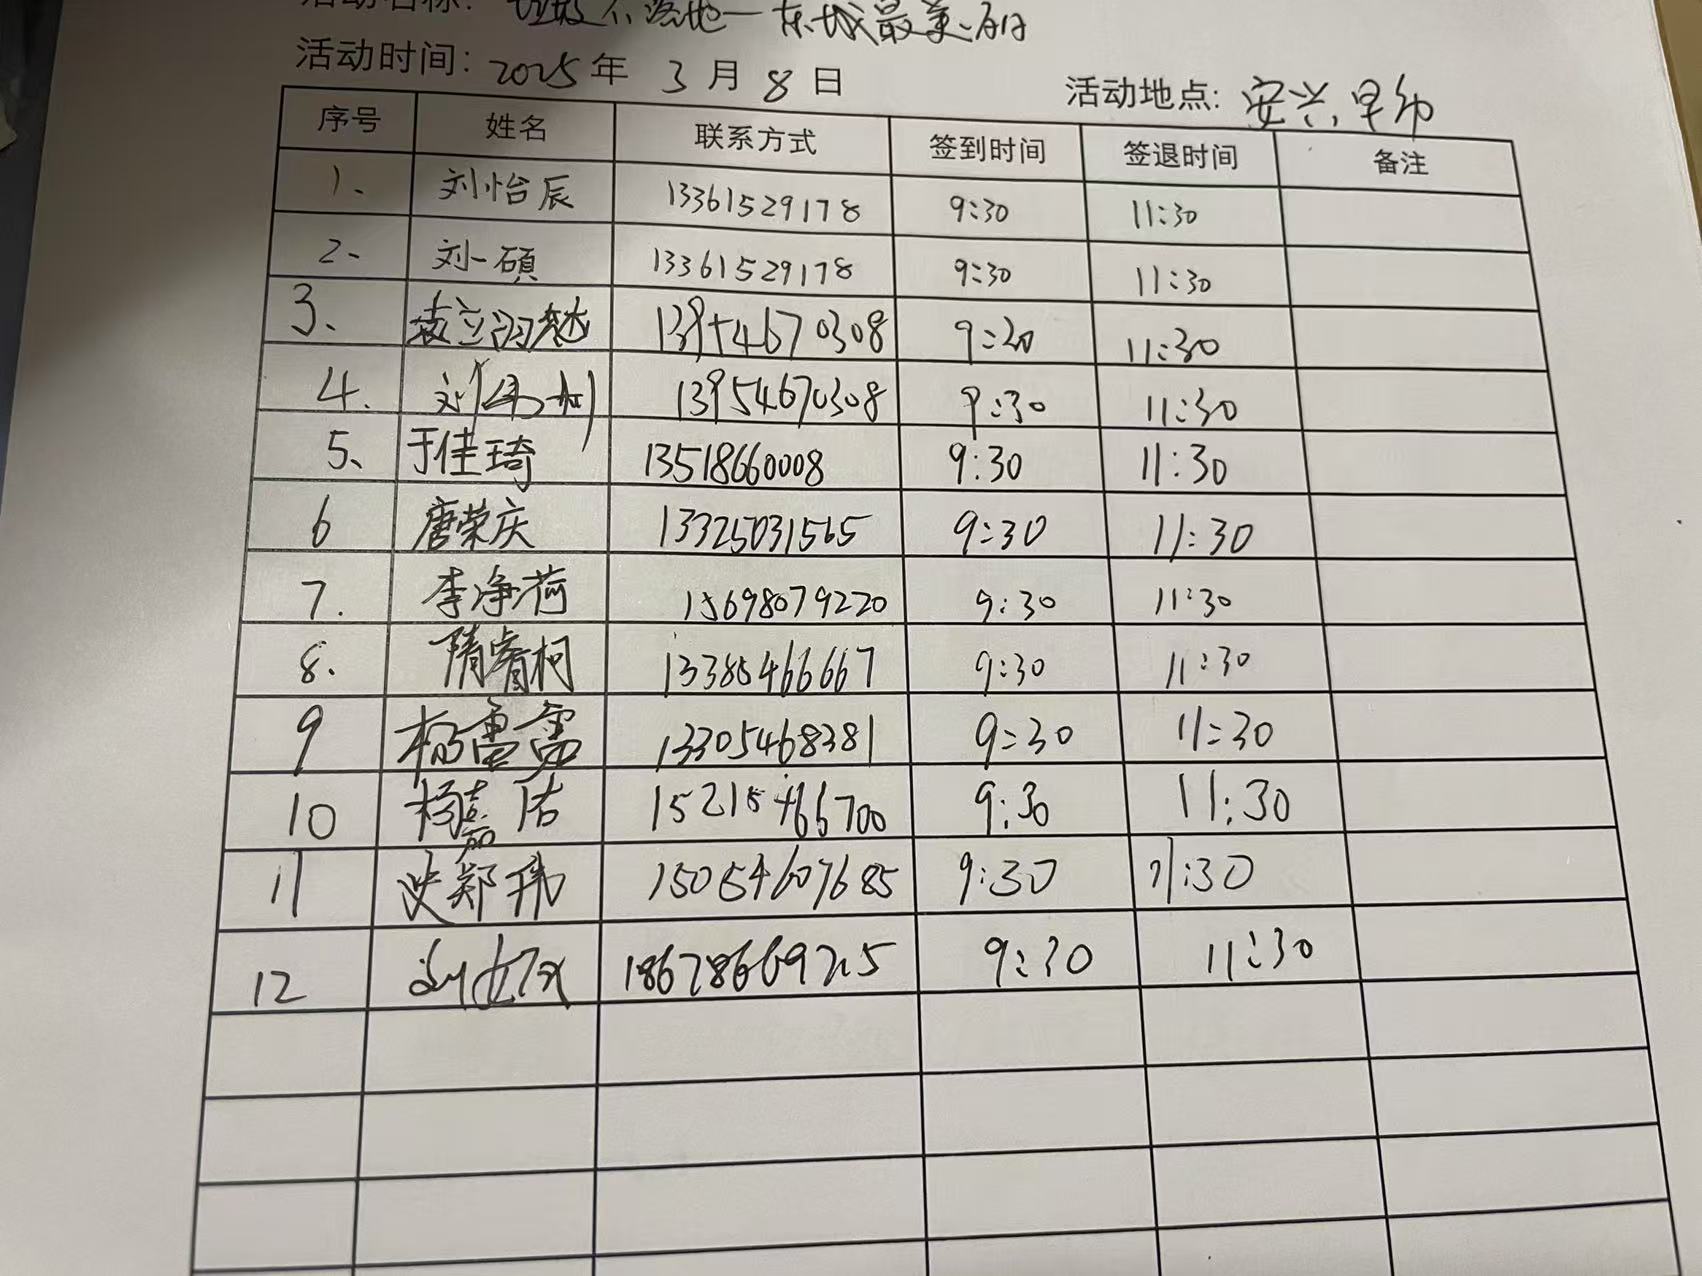 活动名称: 垃圾不落地—东城最美
活动时间: 2025年 3月8日 活动地点: 安兴早市
序号 姓名 联系方式 签到时间 签退时间 备注
1、 刘怡辰 13361529178 9:30 11:30
2、 刘一硕 13361529178 9:30 11:30
3、 13954670308 9:30 11:30
4. 13954670308 9:30 11:30
5、 于佳琦 13518660008 9:30 11:30
6 唐荣庆 13325031565 9:30 11:30
7. 李净荷 15698079220 9:30 11:30
8. 隋睿柯 13385466667 9:30 11:30
9 13305468381 9:30 11:30
10 杨嘉洁 9:30 11:30
11 史郑玮 15054607685 9:30 11:30
12 18678669225 9:30 11:30